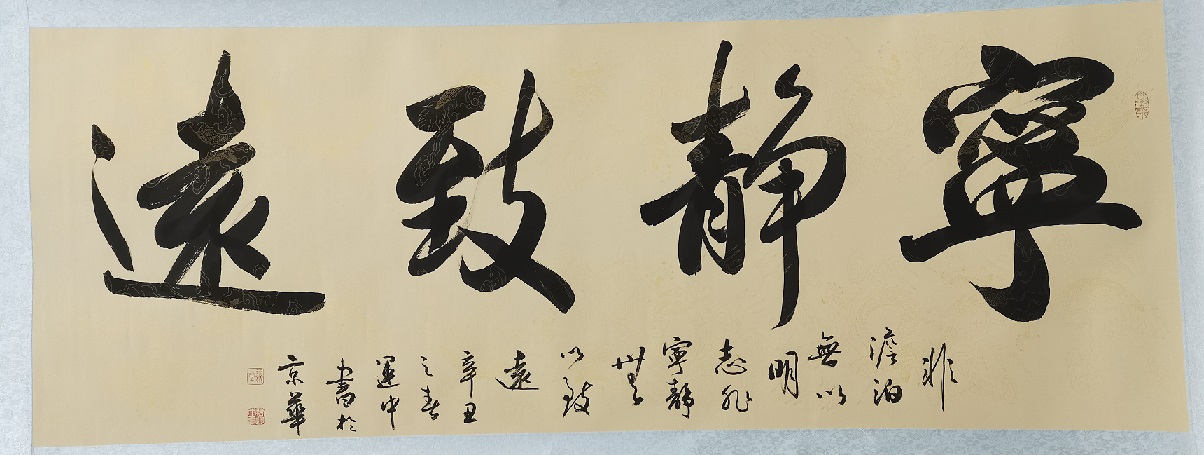 寧靜致遠
非
澹泊
無以
明
志非
寧靜
無
以致
遠
辛丑
之春
運中
書於
京華